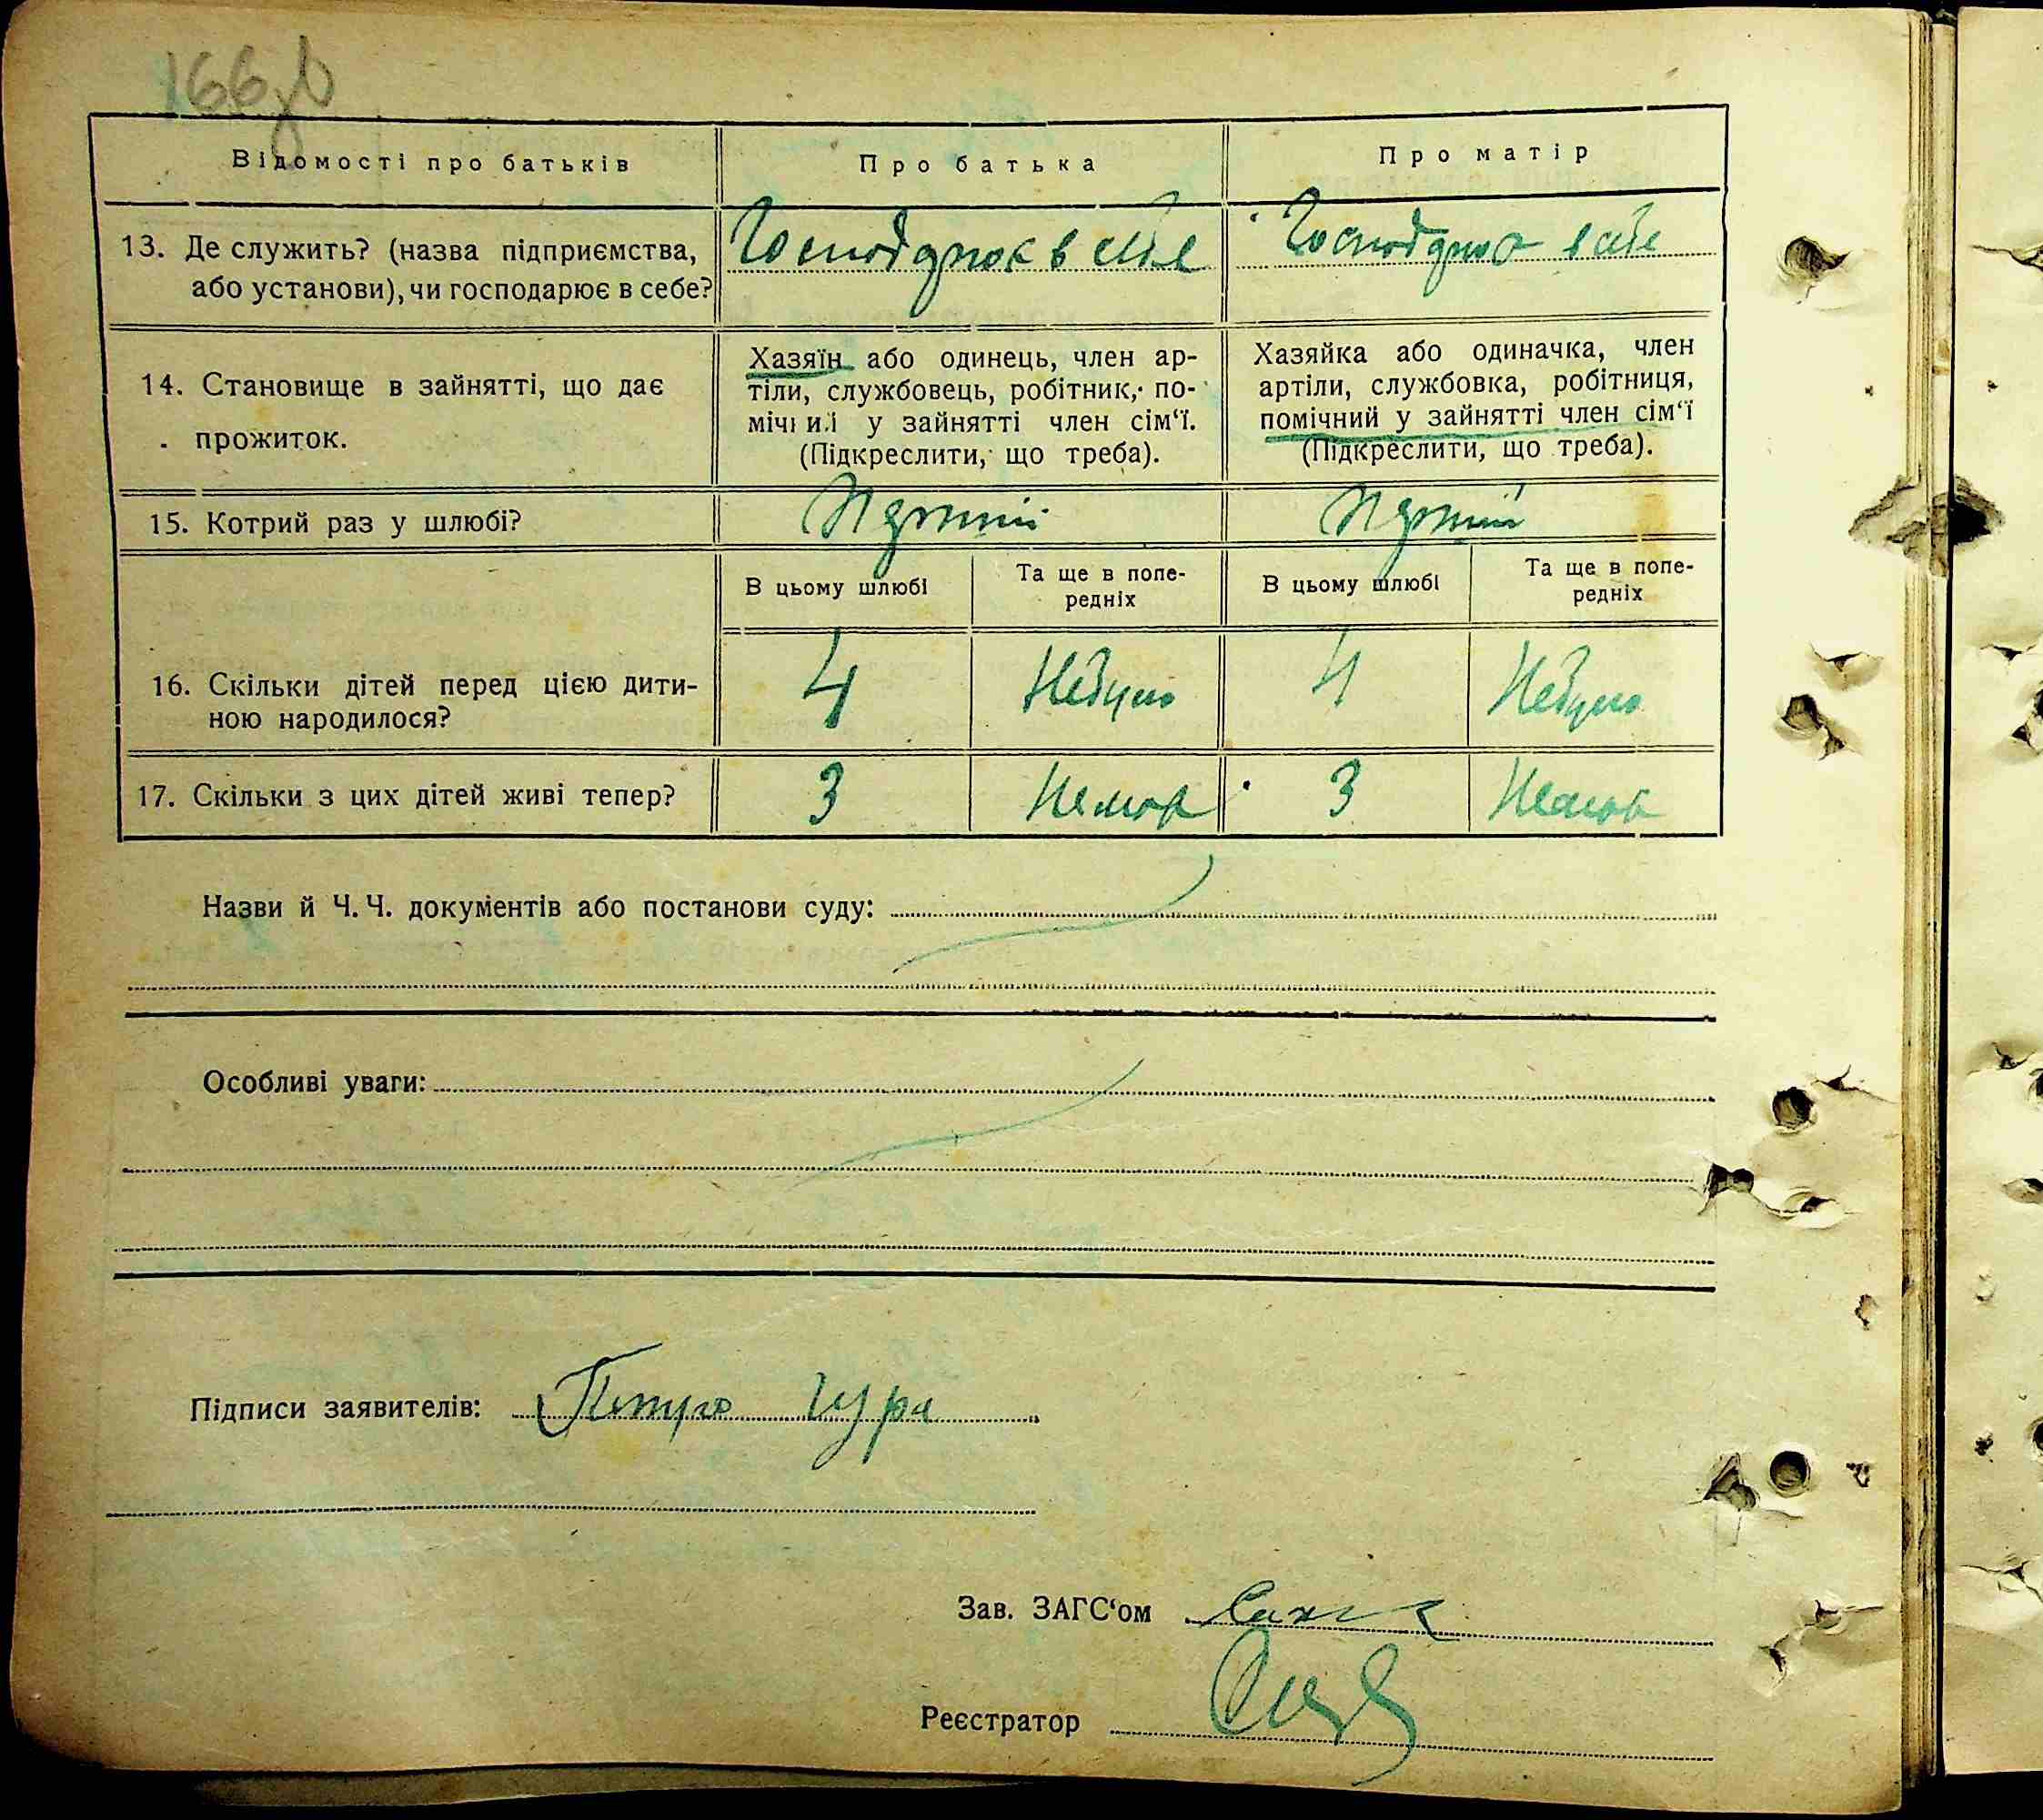 166 зв
Відомості про батьків
Про батька
Про матір
13. Де служить? (назва підприємства,
або установи), чи господарює в себе?
Господарює в себе
Господарює в себе
14. Становище в зайнятті, що дає
прожиток.
Хазяїн або одинець, член ар-
тіли, службовець, робітник, по-
мічний у зайнятті член сім‘ї.
(Підкреслити, що треба).
Хазяйка або одиначка, член
артіли, службовка, робітниця,
помічний у зайнятті член сім‘ї
(Підкреслити, що треба).
15. Котрий раз у шлюбі?
Перший
Перший
В цьому шлюбі
Та ще в попе-
редніх
В цьому шлюбі
Та ще в попе-
редніх
16. Скільки дітей перед цією дити-
ною народилося?
4
Небуло
4
Небуло
17. Скільки з цих дітей живі тепер?
3
Немає
3
Немає
Назви й Ч. Ч. документів або постанови суду:
Особливі уваги:
Підписи заявителів: Петро Гура
Зав. ЗАГС‘ом
Реєстратор